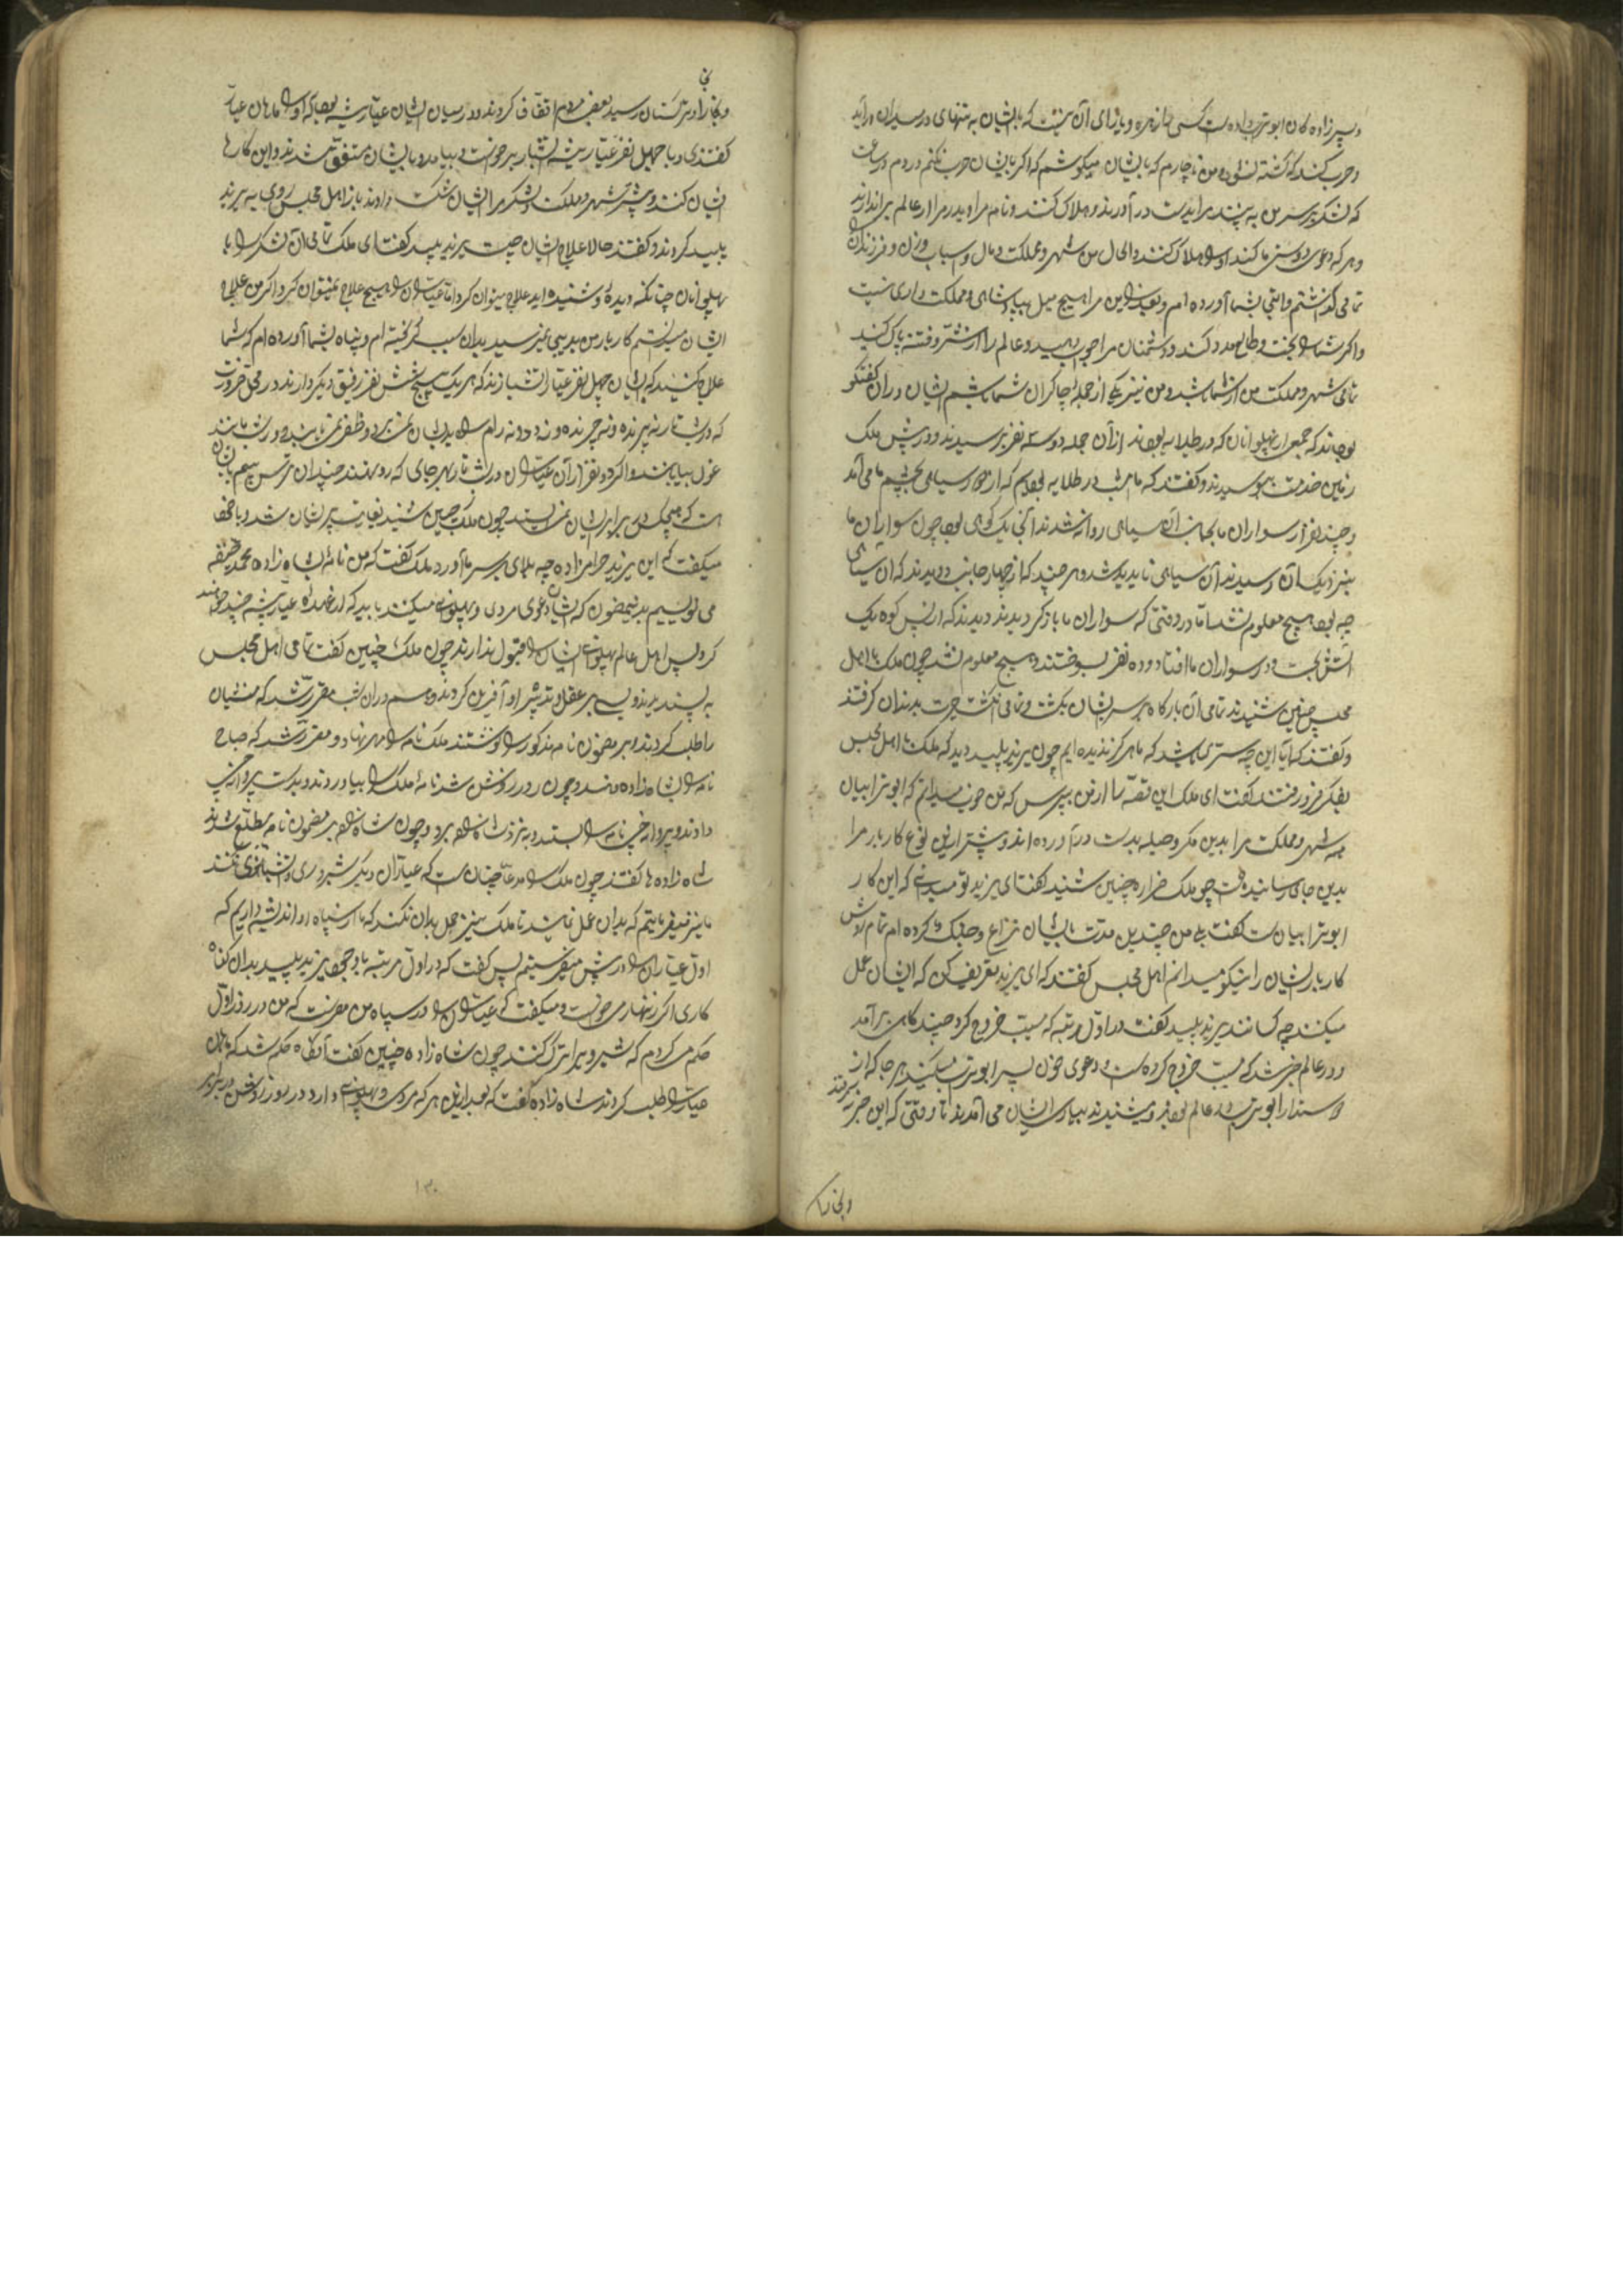 و پسرزاده کان ابوتراب داده است کسی تازه و یارای آن نیست که با ایشان به تنهای در میدان درآید
و حرب کند که کشته نشود و من ناچارم که با ایشان میکوشم که اگر با ایشان حرب نکنم در دم و ساعت
که لشکر بر سر من به یزند مرا بدست درآورند و هلاک کنند و نام مرا و پدر مرا از عالم براندازند
و هر که دعوی دوستی ما کند او را هلاک کنند و الحال من شهر و مملکت و مال و اسباب و زن و فرزندان را
تمامی گذاشتم و التجا بشما آورده ام و بعد ازین مرا هیچ میل پادشاهی و مملکت داری نیست
و اگر شما را بخت و طالع مدد کند و دشمنان مرا جواب دهید و عالم را از شر و فتنه پاک کنید
تمامی شهر و مملکت من از شما باشد و من نیز یکی از جمله چاکران شما باشم ایشان در آن گفتگو
بودند که جمعی از پهلوانان که در طلایه بودند از آن جمله دو سه نفر برسیدند و در پیش ملک
زمین خدمت ببوسیدند و گفتند که ما امشب در طلایه بودیم که از دور سیاهی بچشم ما می آمد
و چند نفر از سواران ما بجانب آن سیاهی روانه شدند آنجا یک کوهی بود چون سواران ما
بنزدیک آن رسیدند آن سیاهی ناپدید شد و هر چند که از چهار جانب دویدند که آن سیاهی
چه بود هیچ معلوم نشد اما در وقتی که سواران ما باز گردیدند دیدند که از پس کوه یک
آتش بجست و در سواران ما افتاد و ده نفر بسوختند و هیچ معلوم نشد چون ملک با اهل
مجلس چنین شنیدند تمامی آن بارگاه بر سر ایشان بگشت و تمامی انگشت حیرت بدندان گرفتند
و گفتند که آیا این چه ستری باشد که ما هرگز ندیده ایم چون یزید پلید دید که ملک با اهل مجلس
بفکر فرو رفتند گفت ای ملک این قصه را از من بپرس که من خوب میدانم که ابوترابیان
همه شهر و مملکت مرا بدین مکر و حیله بدست درآورده اند و بیشتر ازین نوع کار بار مرا
بدین جای رسانیده است چو ملک ضراره چنین شنید گفت ای یزید تو میدانی که این کار
ابوترابیان است گفت بلی من چندین مدت با ایشان نزاع و جنگ کرده ام تمام روش
کار بار ایشان را نیکو میدانم اهل مجلس گفتند که ای یزید تعریف کن که ایشان عمل
میکنند چه کسانند یزید پلید گفت در اول مرتبه که مسیب خروج کرد چند گاهی برآمد
و در عالم خبر شد که مسیب خروج کرده است و دعوی خون پسر ابوتراب میکند هر جا که از
دوستدار ابوتراب در عالم بودند و شنیدند بیاری ایشان می آمدند تا وقتی که این خبر بیرفتند
و بخارا
و بخارا و ترکستان رسید بعضی مردم اتفاق کردند و در میان ایشان عیار پیشه بود که او را ماهان عیار
گفتندی و با چهل نفر عیار پیشه انتشار برخواست و بیامد و با ایشان متفق شدند و این کارها
ایشان کنند و بیشتر شهر و مملکت و لشکر مرا ایشان شکست دادند باز اهل مجلس روی به یزید
پلید کردند و گفتند حالا علاج ایشان چیست یزید پلید گفت ای ملک تمامی آن لشکر را با
پهلوانان چنانکه دیده و شنیده اید علاج میتوان کرد اما عیاران را هیچ علاج نمیتوان کرد اگر من علاج
ایشان میدانستم کار بار من بدینجا نمیرسید بدان سبب گریخته ام و پناه بشما آورده ام که شما
علاج کنید که ایشان چهل نفر عیار آتشبازند که هر یک پنج شش نفر رفیق دیگر دارند در محل ضرورت
که در شب تار نه پرنده و نه چرنده و نه دد و نه رام را بدیشان گذر نبود و ظفر نمی یابد و در شب مانند
غول بیابانند و اگر دو نفر از آن عیاران در شب تار بهر جای که رو نهند چندان ترس و بیم با ایشان
است که هیچکس در برابر ایشان نمی ایستد چون ملک چنین شنید بغایت پریشان شد و با خود
میگفت که این یزید حرامزاده چه بلای بر سر ما آورد ملک گفت که من نامه بشاه زاده محمد حنفیه
می نویسیم بدین مضمون که ایشان دعوی مردی و پهلوانی میکنند باید که از عهده عیار پیشه چند خواهند
کرد پس اهل عالم پهلوانی ایشان را قبول ندارند چون ملک چنین گفت تمامی اهل مجلس
به پسندیدند و بسی بر عقل و تدبیر او آفرین کردند و هم در آن شب مقرر شد که منشیان
را طلب کردند و بر مضمون نامه مذکور را نوشتند ملک نامه را مهر نهاد و مقرر شد که صباح
نامه را بشاه زاده دهند و چون روز روشن شد نامه ملک را بیاوردند و بدست پروازجی
دادند و پروازجی نامه را بستد و بنزد شاه زاده برد و چون شاه زاده بر مضمون نامه مطلع شدند
شاه زاده ها گفتند چون ملک را مدعا چنان است که عیاران دیگر شبروی و آتشبازی نکنند
ما نیز میفرماییم که بدان عمل نمایند تا ملک نیز عمل بدان نکند که ما از سپاه او اندیشه داریم که
اول عیاران را در پیش میفرستیم پس گفت که در اول مرتبه با وجود یزید پلید بدان گناه
کاری اگر زنهار می خواست و میگفت که عیاران را در سپاه من مفرست که من در روز اول
حکم می کردم که شبروی را ترک کنند چون شاه زاده چنین گفت آنگاه حکم شد که ماهان
عیار را طلب کردند شاه زاده گفت که بعد ازین هر که مردی و پهلوانی دارد در روز روشن در برابر
۱۳۰